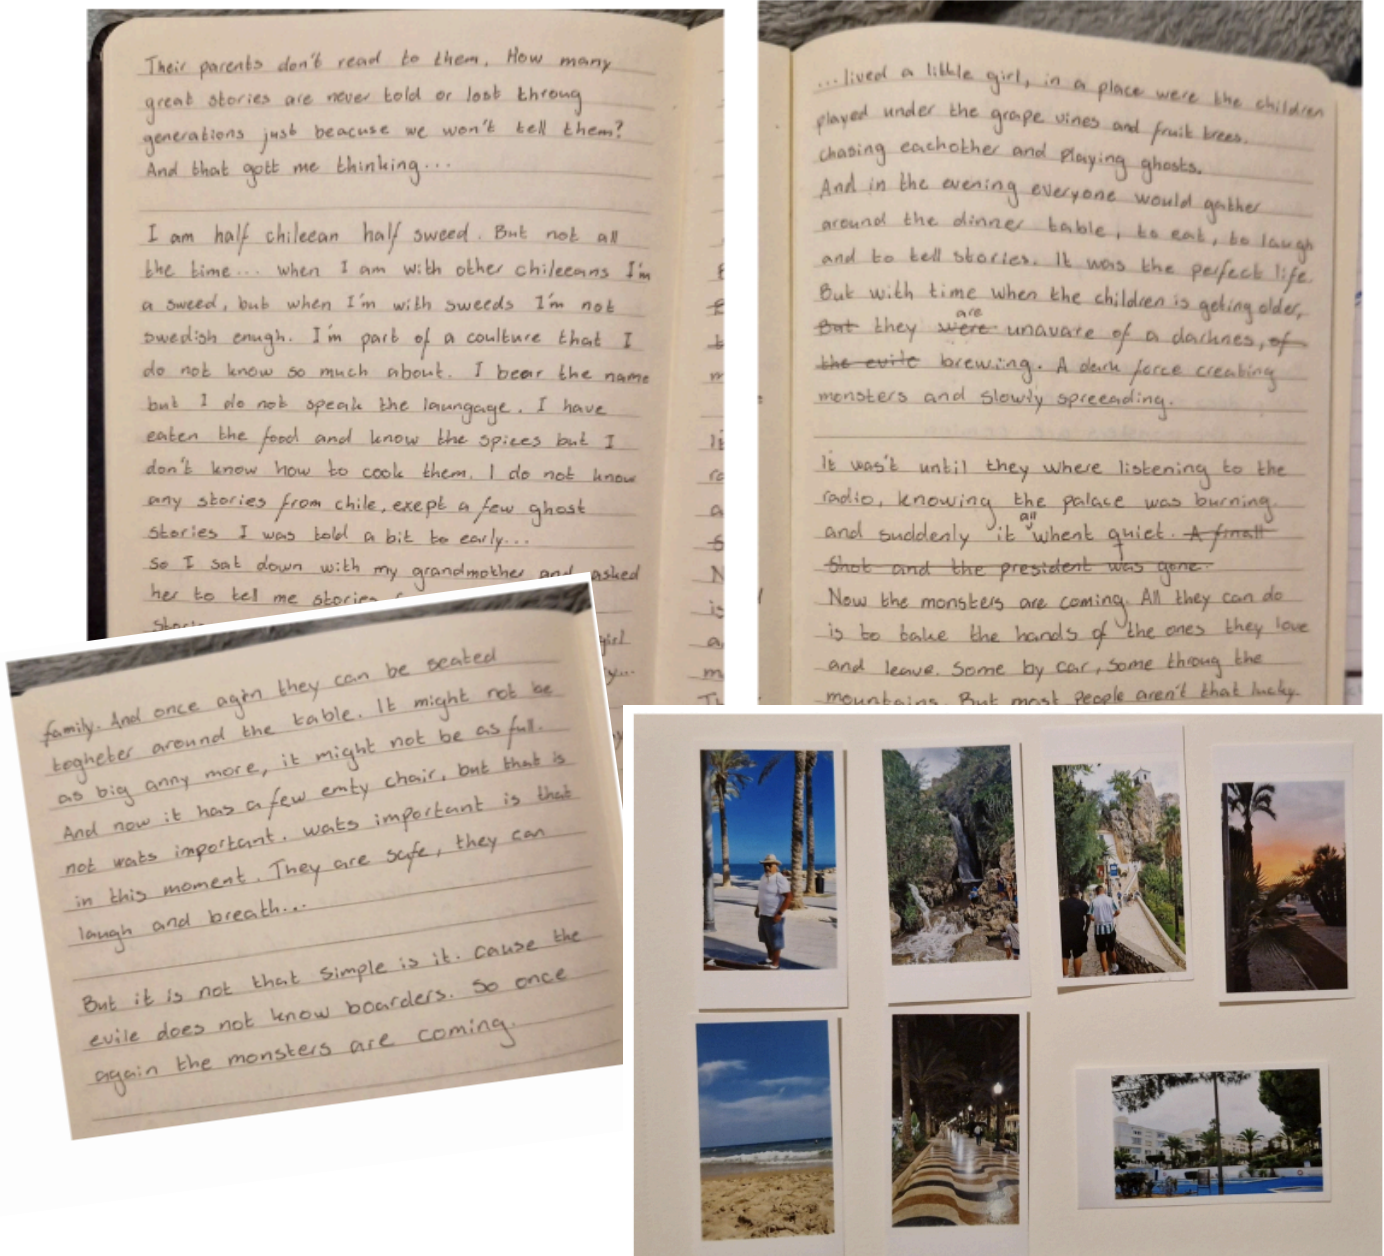 Their parents don't read to them. How many
great stories are never told or lost throug
generations just beacuse we won't tell them?
And that gott me thinking...
I am half chileean half sweed. But not all
the time... when I am with other chileeans I'm
a sweed, but when I'm with sweeds I'm not
swedish enugh. I'm part of a coulture that I
do not know so much about. I bear the name
but I do not speak the laungage. I have
eaten the food and know the spices but I
don't know how to cook them. I do not know
any stories from chile, exept a few ghost
stories I was told a bit to early...
So I sat down with my grandmother and asked
her to tell me stories
girl
...lived a little girl, in a place were the children
played under the grape vines and fruit trees.
chasing eachother and playing ghosts.
And in the evening everyone would gather
around the dinner table, to eat, to laugh
and to tell stories. It was the perfect life.
But with time when the children is geting older,
But they were are unavare of a darknes, of
the evile brewing. A dark force creating
monsters and slowly spreeading.
It was't until they where listening to the
radio, knowing the palace was burning.
and suddenly it all whent quiet. A finall
Shot and the president was gone.
Now the monsters are coming. All they can do
is to take the hands of the ones they love
and leave. Some by car, some throug the
mountains. But most people aren't that lucky.
family. And once agin they can be seated
togheter around the table. It might not be
as big anny more, it might not be as full.
And now it has a few emty chair, but that is
not wats important. wats important is that
in this moment. They are safe, they can
laugh and breath...
But it is not that simple is it. cause the
evile does not know boarders. So once
again the monsters are coming.